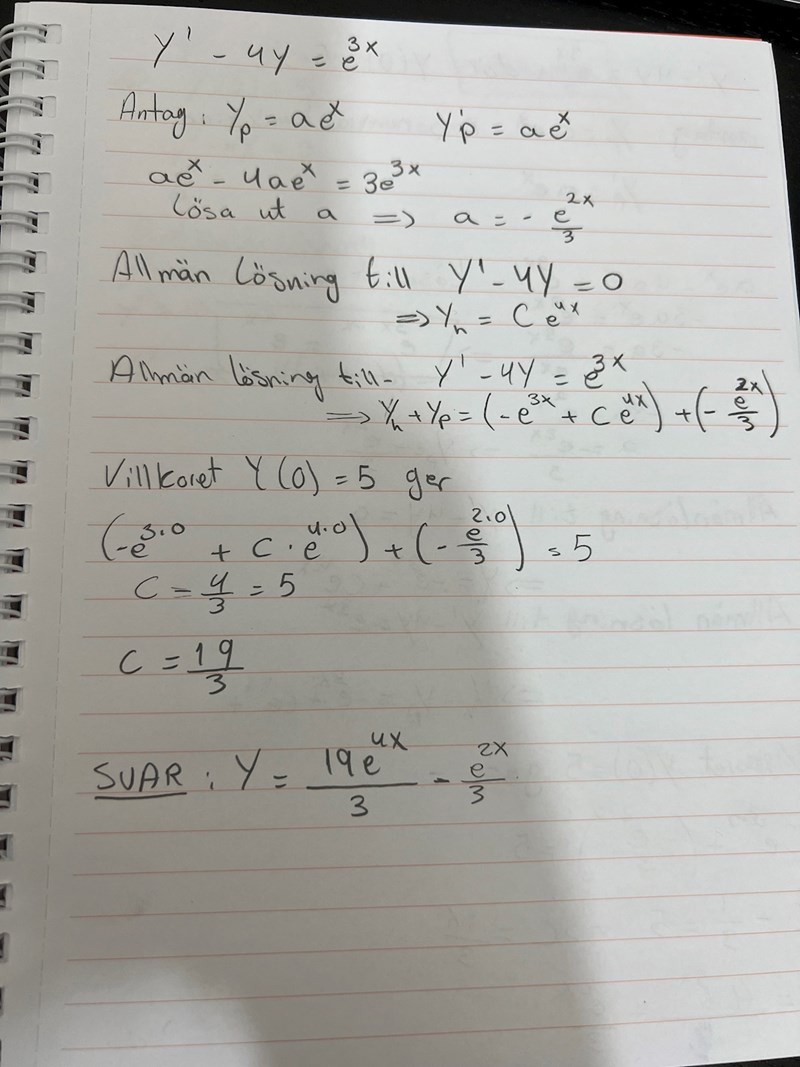 Y' - 4Y = e^3x
Antag: Yp = ae^x Y'p = ae^x
ae^x - 4ae^x = 3e^3x
Lösa ut a => a = - e^2x/3
Allmän lösning till Y' - 4Y = 0
=> Yh = C e^4x
Allmän lösning till- Y' - 4Y = e^3x
=> Yh + Yp = (-e^3x + C e^4x) + (- e^2x/3)
Villkoret Y(0) = 5 ger
(-e^3·0 + C · e^4·0) + (- e^2·0/3) = 5
C - 4/3 = 5
C = 19/3
SVAR: Y = 19e^4x/3 - e^2x/3